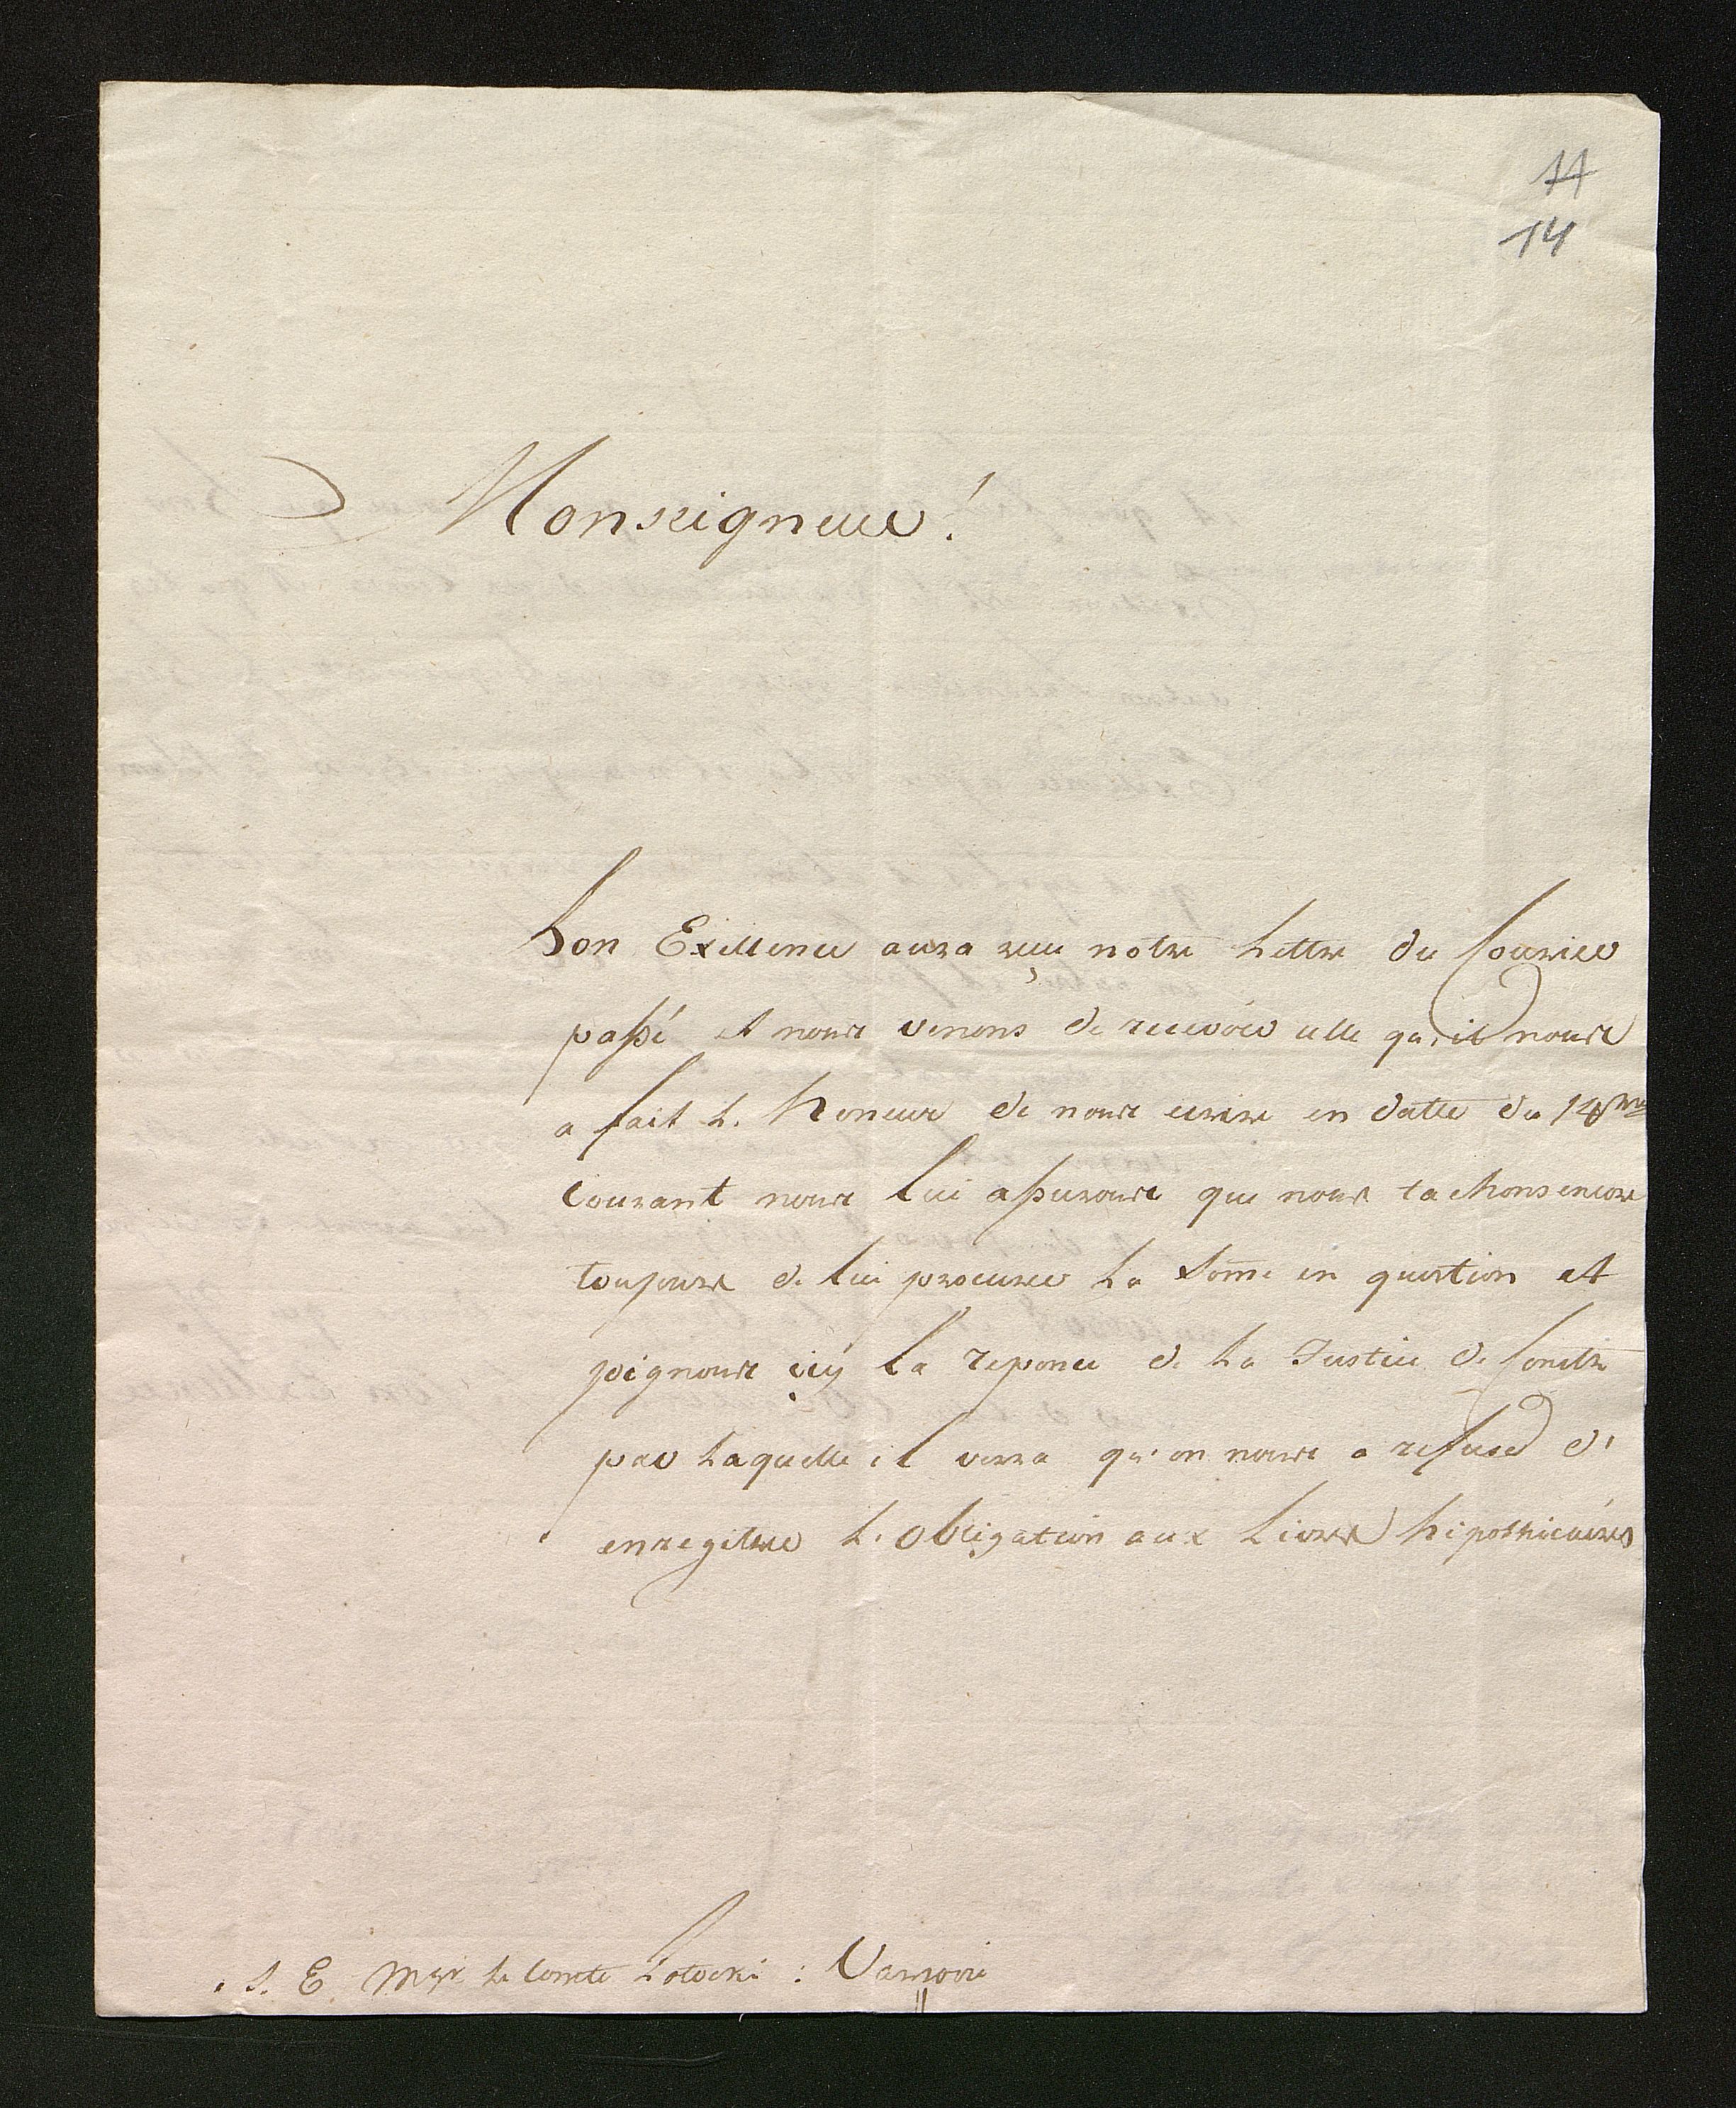 11
14
Monseigneur!
Son Exellence aura reçu notre Lettre du Courier
passé et nous venons de recevoir celle qu'il nous
a fait L'Honeur de nous ecrire en datte du 14me
Courant nous lui assurons que nous tachons encore
toujours de lui procurer La Some en question et
joignons içy La reponce de La Justice de
par Laquelle il verra qu'on nous a refusé d'
enregitrer L'Obligation aux Livres hipothicaires
S. E. Mgr Le Comte Potocki : Varsovie